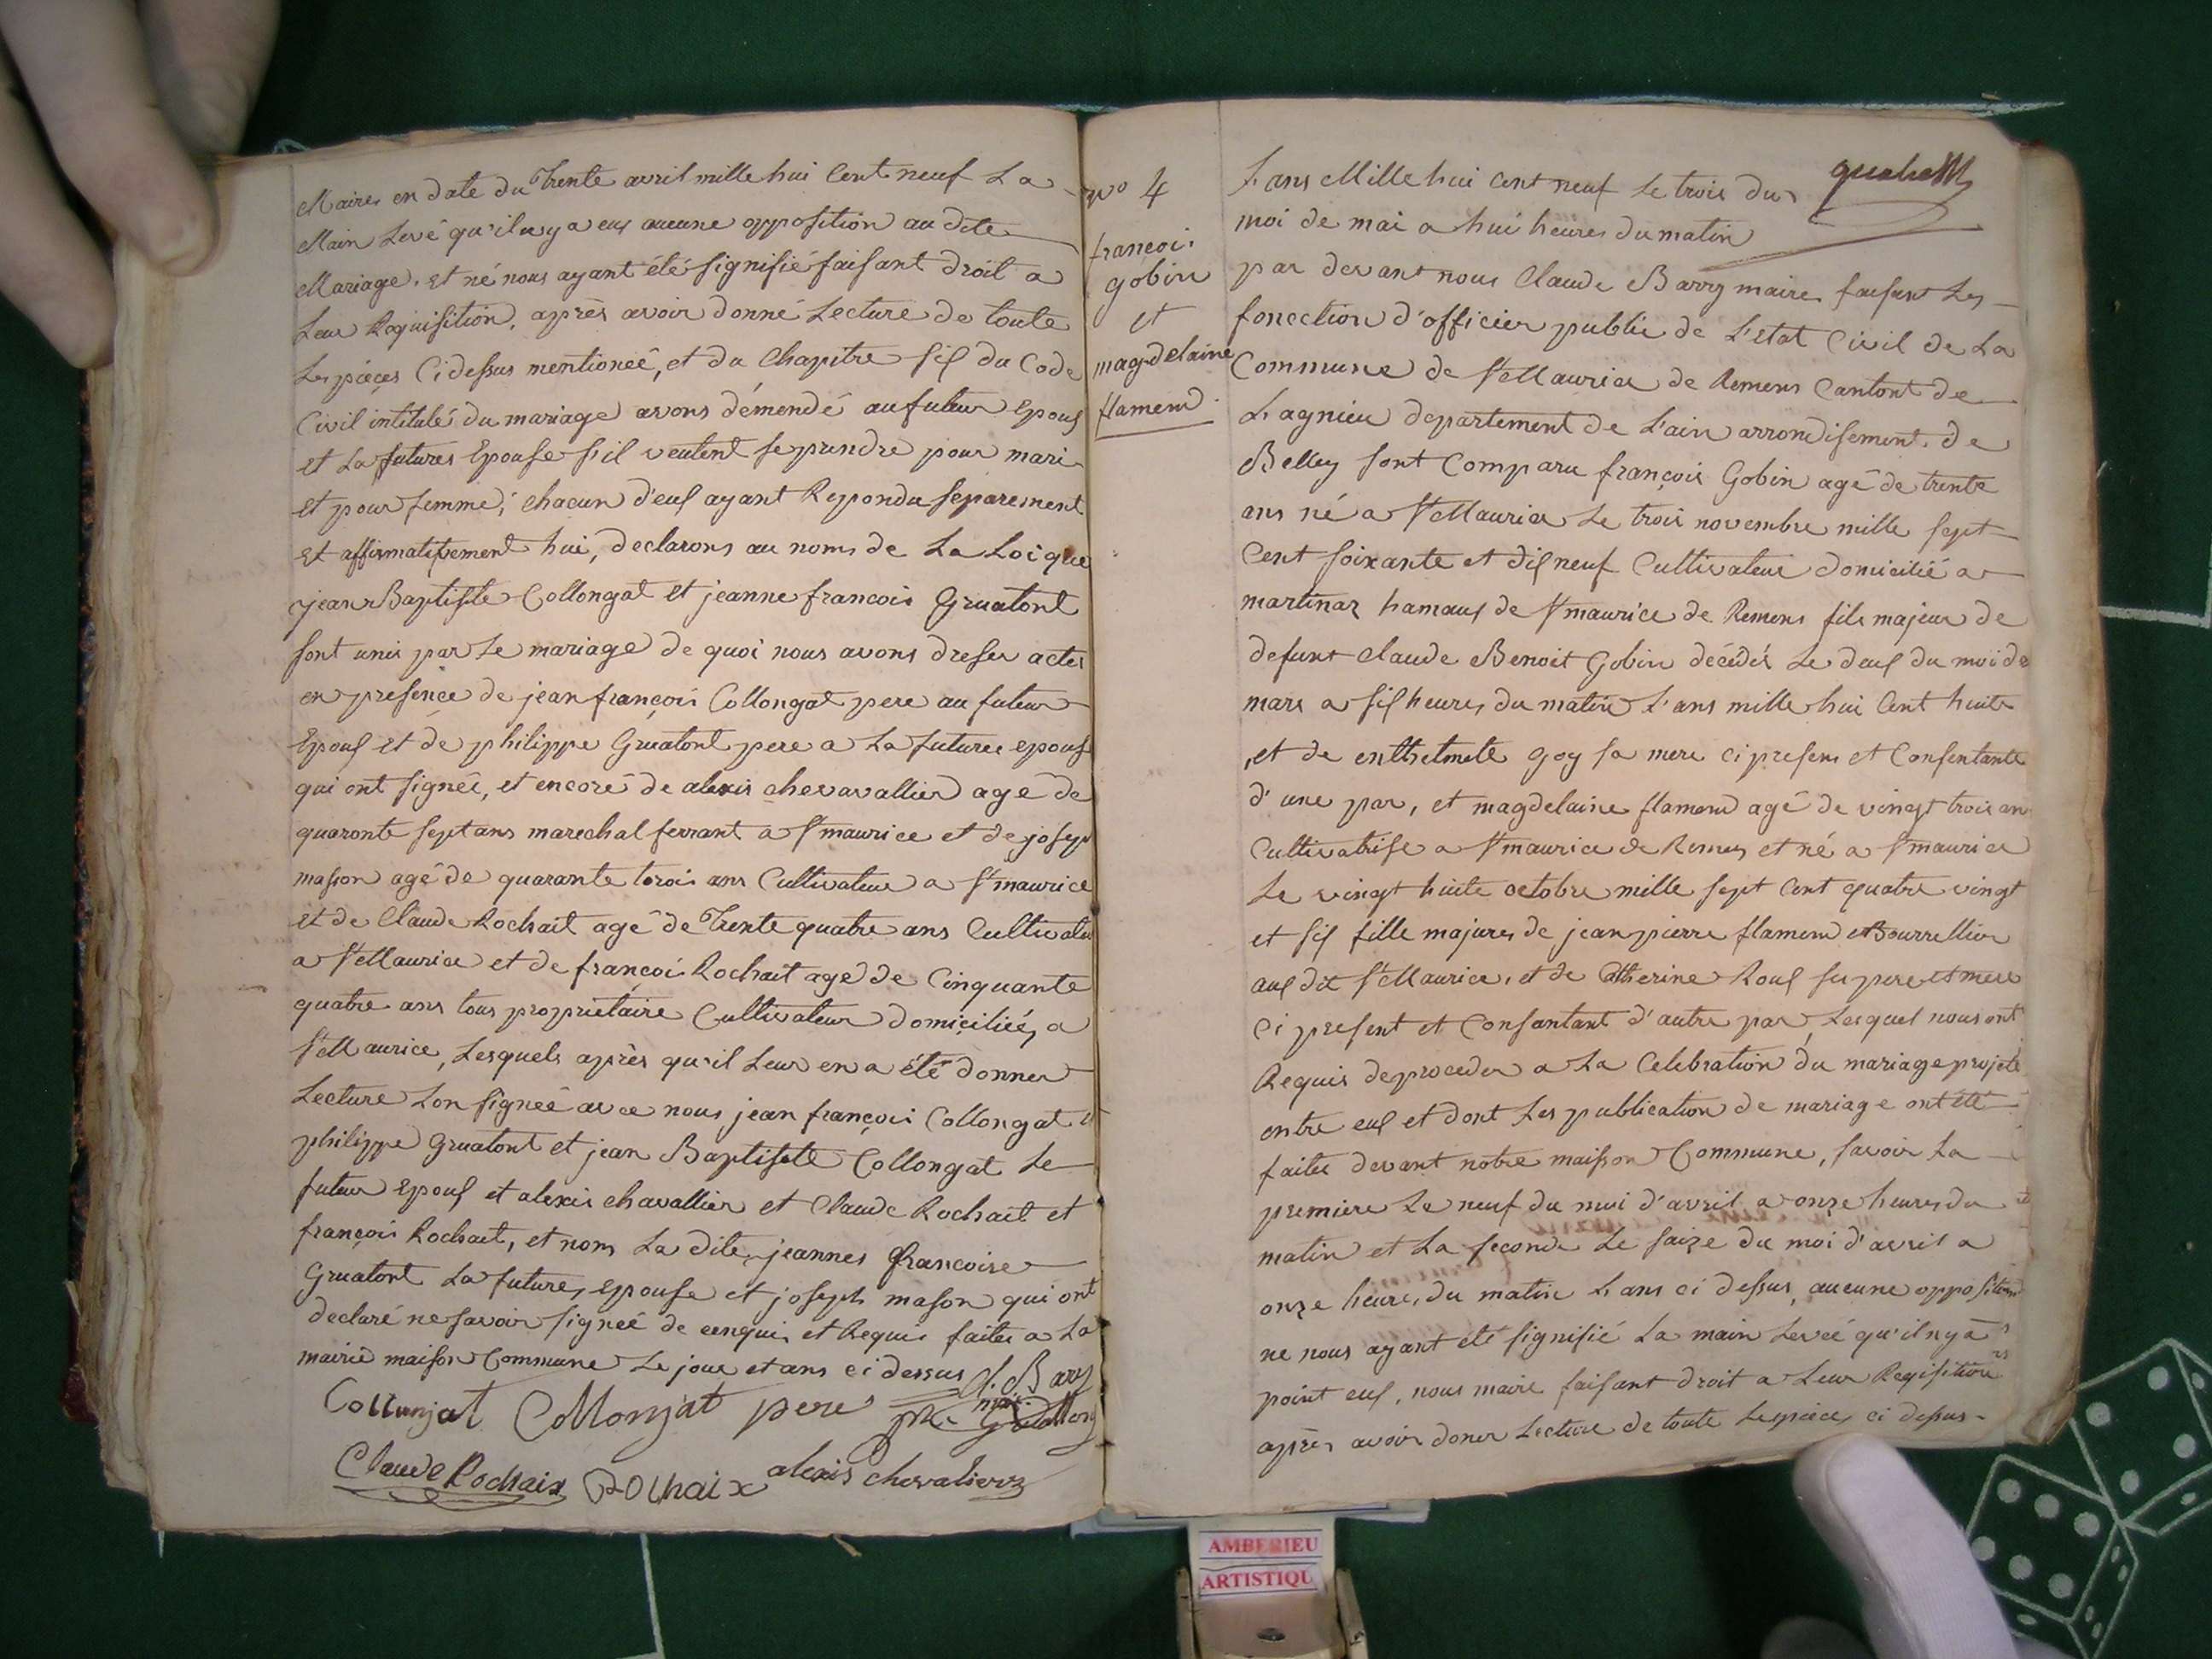 Maires en date du Trente avril mille hui Cent neuf La
Main Levé qu'il n'y a eus aucune opposition au dite
Mariage. et né nous ayant été signifié faisant droit a
Leur Requisition, après avoir donné Lecture de toute
Les pièces Cidessus mentioneé, et du Chapitre six du Code
Civil intitulé du mariage avons démendé au futeur Epoux
et La futures Epouse s'il veulent se prendre pour mari
et pour femme; chacun d'eux ayant Repondu separement
et affirmativement hui, declarons au noms de La Loi que
jean Baptiste Collongat et jeanne francois Gruatont
sont unis par Le mariage de quoi nous avons dreser actes
en presence de jean françois Collongat pere au futeur
Epoux et de philippe Gruatont pere a La futures epouse
qui ont signée, et encoré de alexis chevavallier age de
quaronte sept ans marechal ferrant a St maurice et de josep
masson agé de quarante trois ans Cultivateur a St maurice
et de Claude Rochait agé de Trente quatre ans Cultivateu
a St Maurice et de françoi Rochait age de Cinquante
quatre ans tous proprietaire Cultivateur domiciliés a
St Maurice, Lesquels après qu'il Leur en a été donner
Lecture Lon signeé avec nous jean françois Collongat et
philippe Gruatont et jean Baptiste Collongat Le
futeur Epoux et alexis chavallier et Claude Rochait et
françois Rochait, et nom La dite, jeannes francoise
Gruatont La future, epouse et joseph mason qui ont
declaré ne savoir signeé de enquis et Requis faites a La
mairie maison Commune Le jour et ans ci dessus Cl. Barry
Collonjat Collonjat pere
Claude Rochaix Rochaix alexis chevalier
no 4
françois
gobin
et
magdelaine
flamend
L'ans Mille hui cent neuf Le trois du
moi de mai a hui heures du matin
par devant nous Claude Barry maire faisant Les
fonection d'officier public de L'etat Civil de La
Commune de St Maurice de Remens Cantont de
Lagnieu departement de L'ain arrondisement de
Belley sont Comparu françois Gobin agé de trente
ans né a St Maurice Le trois novembre mille sept
Cent soixante et dix neuf Cultivateur domicilié a
martinaz hamaux de St maurice de Remens fils majeur de
defunt Claude Benoit Gobin décédés Le deux du moi de
mars a six heures du matin L'ans mille hui Cent huite
et de goy sa mere ci presens et Consentante
d'une par, et magdelaine flamend agé de vingt trois an
Cultivatrise a St maurice de Remens et né a St maurice
Le vingt huite octobre mille sept Cent quatre vingt
et six fille majures de jean pierre flamend Bourrellier
aux dit St Maurice, et de Catherine Roux ses pere et mere
ci present et Consantant d'autre par, Lesquel nous ont
Requis de proceder a La Celebration du mariage projeté
entre eux et dont Les publication de mariage ont été
faites devant notre maison Commune, savoir La
premiere Le neuf du moi d'avril a onze heures du
matin et La seconde Le saize du moi d'avril a
onze heures, du matin L'ans ci dessus, aucune opposition
ne nous ayant été signifié La main Leveé qu'il n'y a
point eux, nous maire faisant droit a Leur Reqisition
après avoir doner Lecture de toute Les pieces ci dessus
AMBERIEU
ARTISTIQU